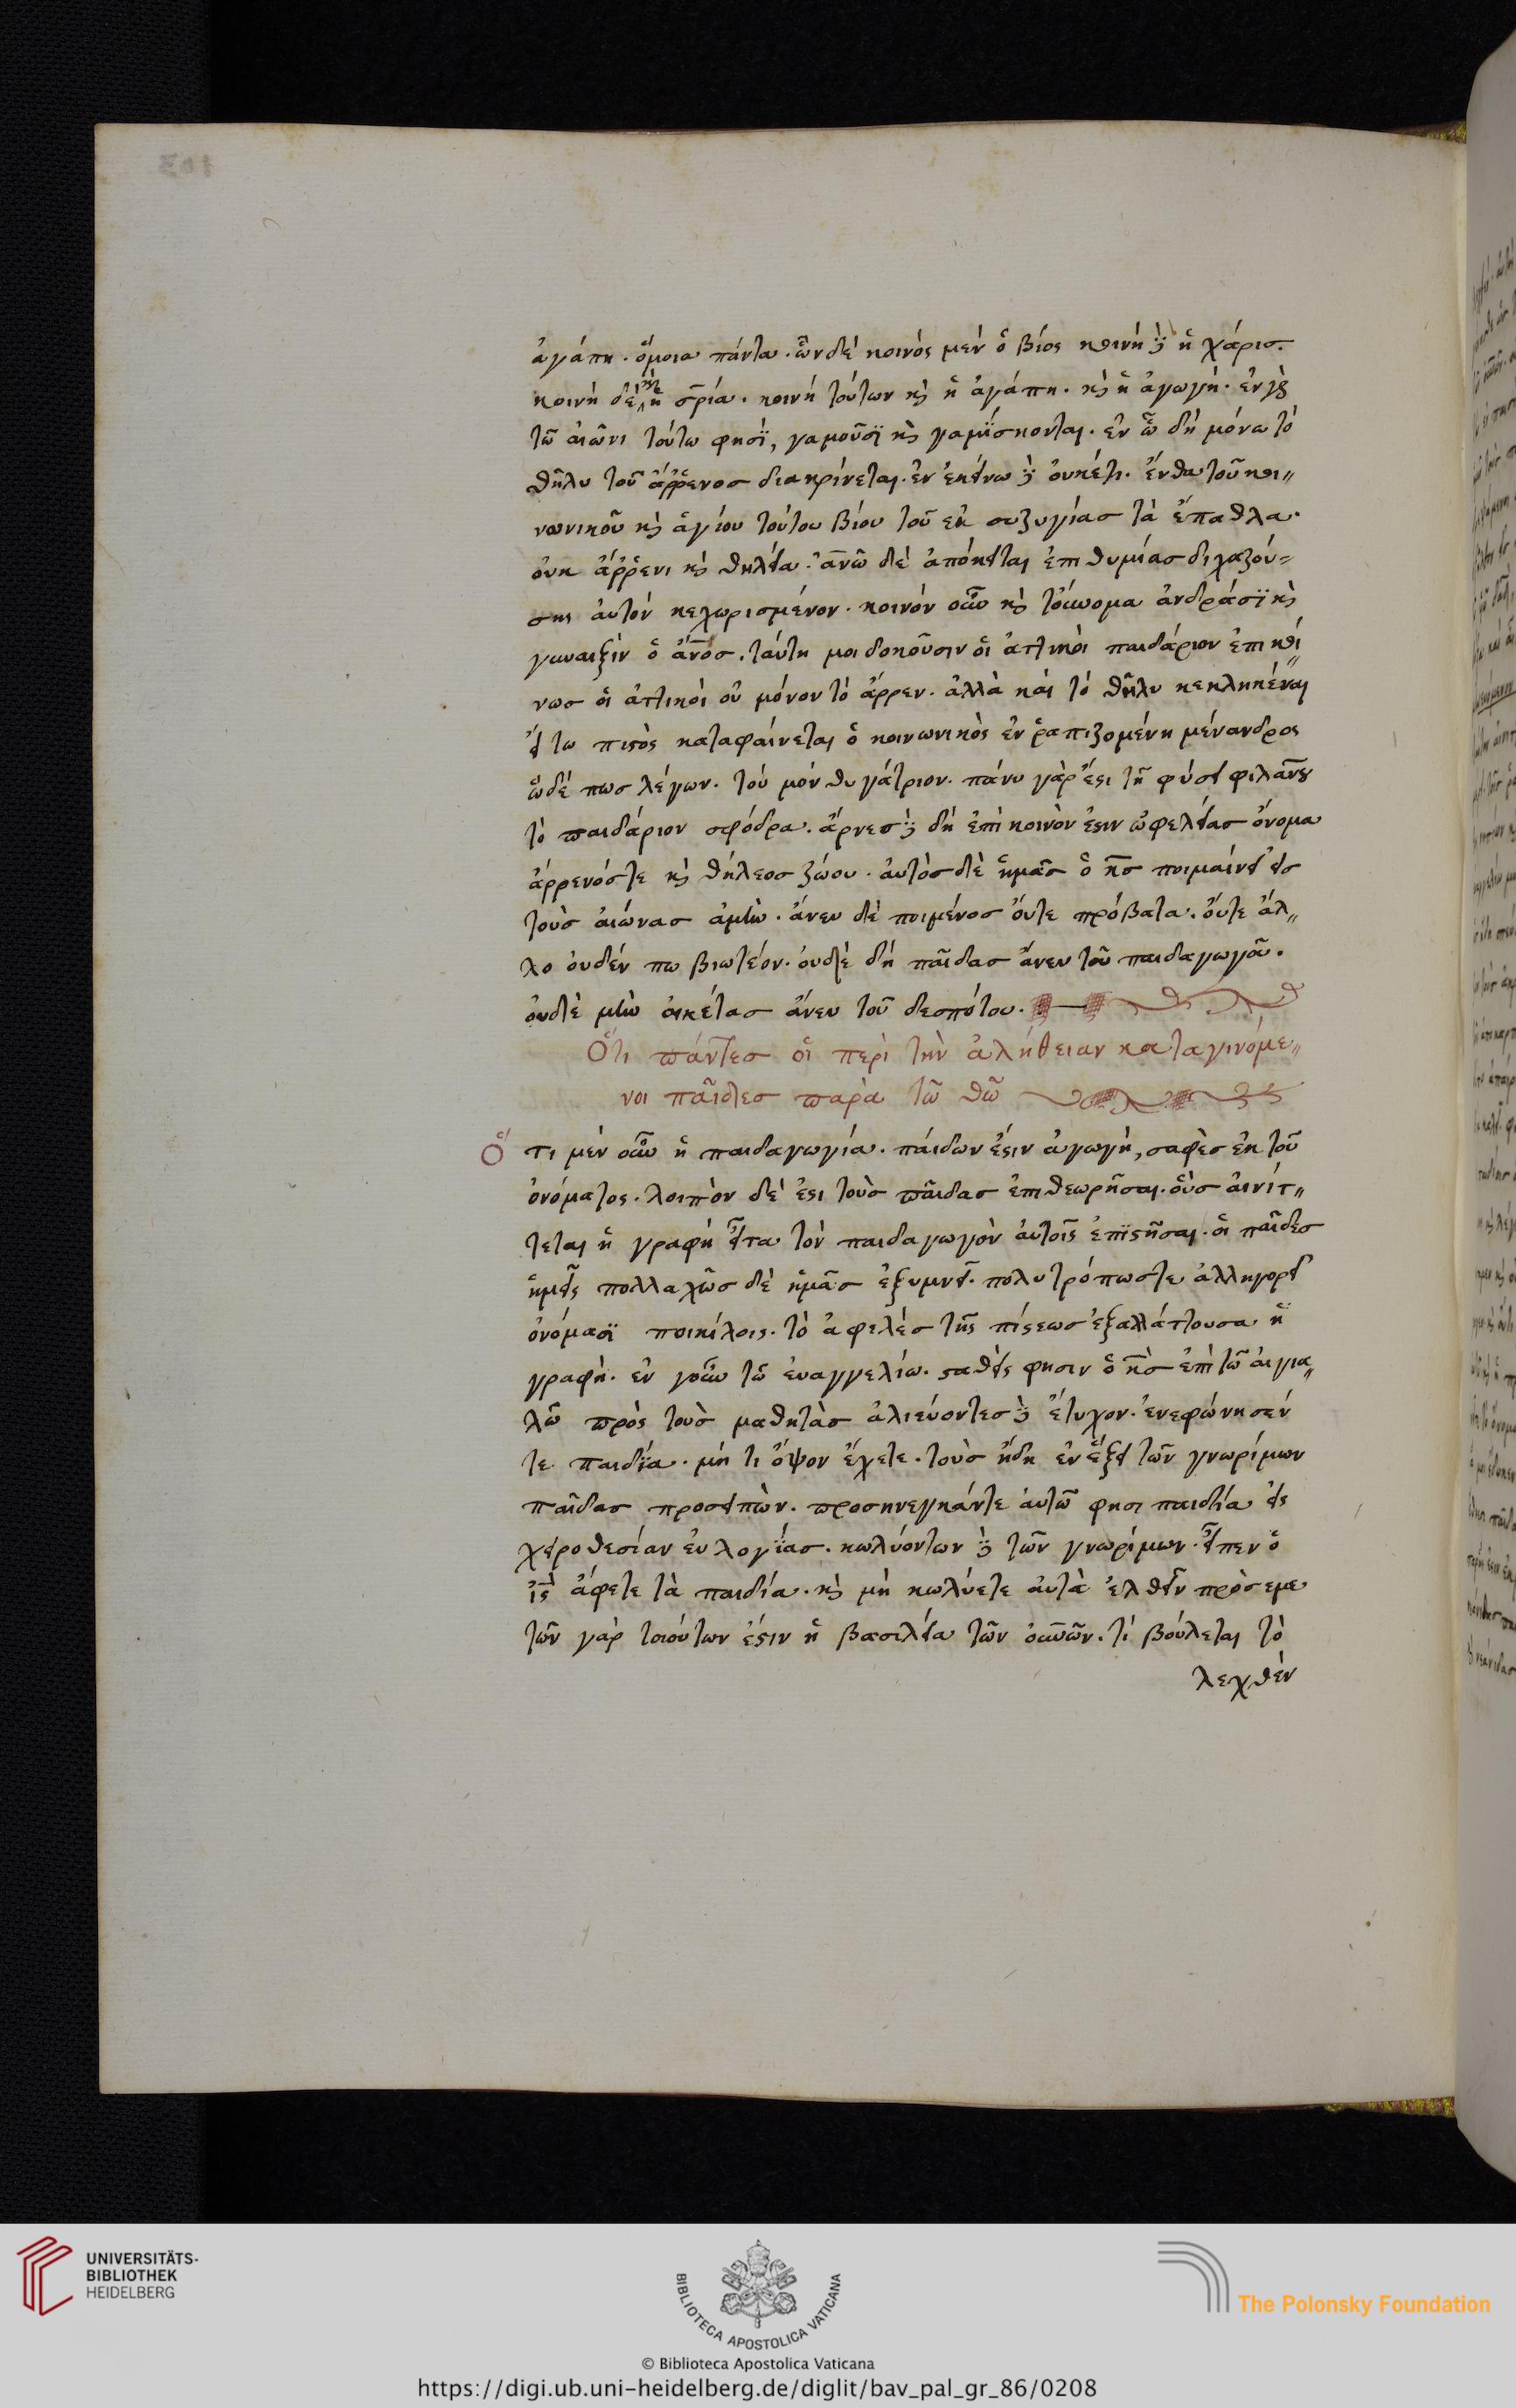 103
ἀγάπη. ὅμοια πάντα. ὧν δὲ κοινὸς μὲν ὁ βίος κοινὴ δὲ ἡ χάρις.
κοινὴ δὲ καὶ ἡ σρία. κοινὴ τούτων κ̀ ἡ ἀγάπη. κ̀ ἡ ἀγωγή. ἐν γὰρ
τῶ αἰῶνι τούτω φησϊ, γαμοῦσϊ κ̀ γαμΐσκονται. ἐν ὧ δὴ μόνω τὸ
θῆλυ τοῦ ἄῤῥενοσ διακρίνεται. ἐν ἐκείνω δὲ ὀυκέτι. ἔνθα τοῦ κοι〃
νωνικοῦ κ̀ ἁγίου τούτου βίου τοῦ ἐκ συζυγίασ τὰ ἔπαθλα.
ὀυκ ἄῤῥενι κ̀ θηλεία. ἀνῶ δὲ ἀπόκειται ἐπιθυμίασ διχαζού〃
σησ ἀυτὸν κεχωρισμένον. κοινὸν οὖν κ̀ τοὔνομα ἀνδράσϊ κ̀
γυναιξὶν ὁ ἄνοσ. ταύτη μοι δοκοῦσιν οἱ ἀττικοὶ παιδάριον ἐπικοί〃
νωσ οἱ ἀττικοὶ οὐ μόνον τὸ ἄρρεν. ἀλλὰ καὶ τὸ θῆλυ κεκληκέναι
εἴ τω πιστὸς καταφαίνεται ὁ κοινωνικὸς ἐν ῥαπιζομένη μένανδρος
ὧδέ πωσ λέγων. τού μόν θυγάτριον. πάνυ γὰρ ἔστι τῆ φύσει φιλάνον
τὸ παιδάριον σφόδρα. ἄρνεσ δὲ δὴ ἐπὶ κοινὸν ἔστιν ὠφελείασ ὄνομα
ἄρρενόστε κ̀ θήλεοσ ζώου. ἀυτὸσ δὲ ἡμᾶσ ὁ κσ ποιμαίνει εἰσ
τοὺσ ἀιώνασ ἀμήν. ἄνευ δὲ ποιμένοσ ὄυτε πρόβατα. ὄυτε ἄλ〃
λο ὀυδέν πω βιωτέον. ὀυδὲ δὴ παῖδασ ἄνευ τοῦ παιδαγωγοῦ.
ὀυδὲ μὴν οἰκέτασ ἄνευ τοῦ δεσπότου.
Ὅτι πάντεσ οἱ περὶ τὴν ἀλήθειαν καταγινόμε〃
νοι παῖδεσ παρὰ τῶ θῶ
Ὅτι μὲν οὖν ἡ παιδαγωγία. πάιδων ἔστιν ἀγωγὴ, σαφὲσ ἐκ τοῦ
ὀνόματος. λοιπὸν δέ ἐστι τοὺσ παῖδασ ἐπιθεωρῆσαι. οὓσ ἀινίτ〃
τεται ἡ γραφὴ εἶτα τὸν παιδαγωγὸν ἀυτοῖς ἐπϊστῆσαι. οἱ παῖδεσ
ἡμεῖς πολλαχῶσ δὲ ἡμᾶσ ἐξυμνεῖ. πολυτρόπωστε ἀλληγορεῖ
ὀνόμασϊ ποικίλοις. τὸ ἀφελὲσ τῆς πίστεωσ ἐξαλλάττουσα ἡ
γραφὴ. ἐν γοῦν τῶ ἐυαγγελίω. σταθεὶς φησιν ὁ κσ ἐπὶ τῶ ἀιγια〃
λῶ πρὸς τοὺσ μαθητὰσ ἁλιεύοντεσ δὲ ἔτυχον. ἐνεφώνησέν
τε παιδΐα. μή τι ὄψον ἔχετε. τοὺσ ἤδη ἐν ἕξει τῶν γνωρίμων
παῖδασ προσειπὼν. προσηνεγκάντε ἀυτῶ φησι παιδία εἰς
χειροθεσίαν ἐυλογΐασ. κωλυόντων δὲ τῶν γνωρίμων. εἶπεν ὁ
ἰς ἄφετε τὰ παιδία. κ̀ μὴ κωλύετε ἀυτὰ ἐλθεῖν πρόσεμε
τῶν γὰρ τοιούτων ἔστιν ἡ βασιλεία τῶν ὀυνῶν. τί βούλεται τὸ
λεχθὲν
UNIVERSITÄTS-
BIBLIOTHEK
HEIDELBERG
BIBLIOTECA APOSTOLICA VATICANA
The Polonsky Foundation
© Biblioteca Apostolica Vaticana
https://digi.ub.uni-heidelberg.de/diglit/bav_pal_gr_86/0208